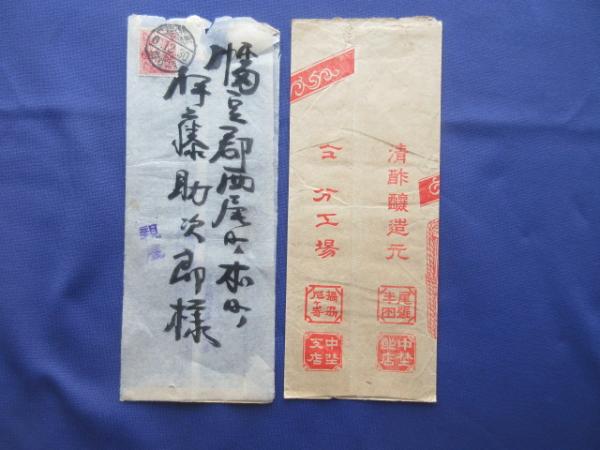 幡豆郡西尾町本町
伊藤助次郎様
親展
清酢釀造元
尾張半田
中埜酢店
仝分工場
中埜支店